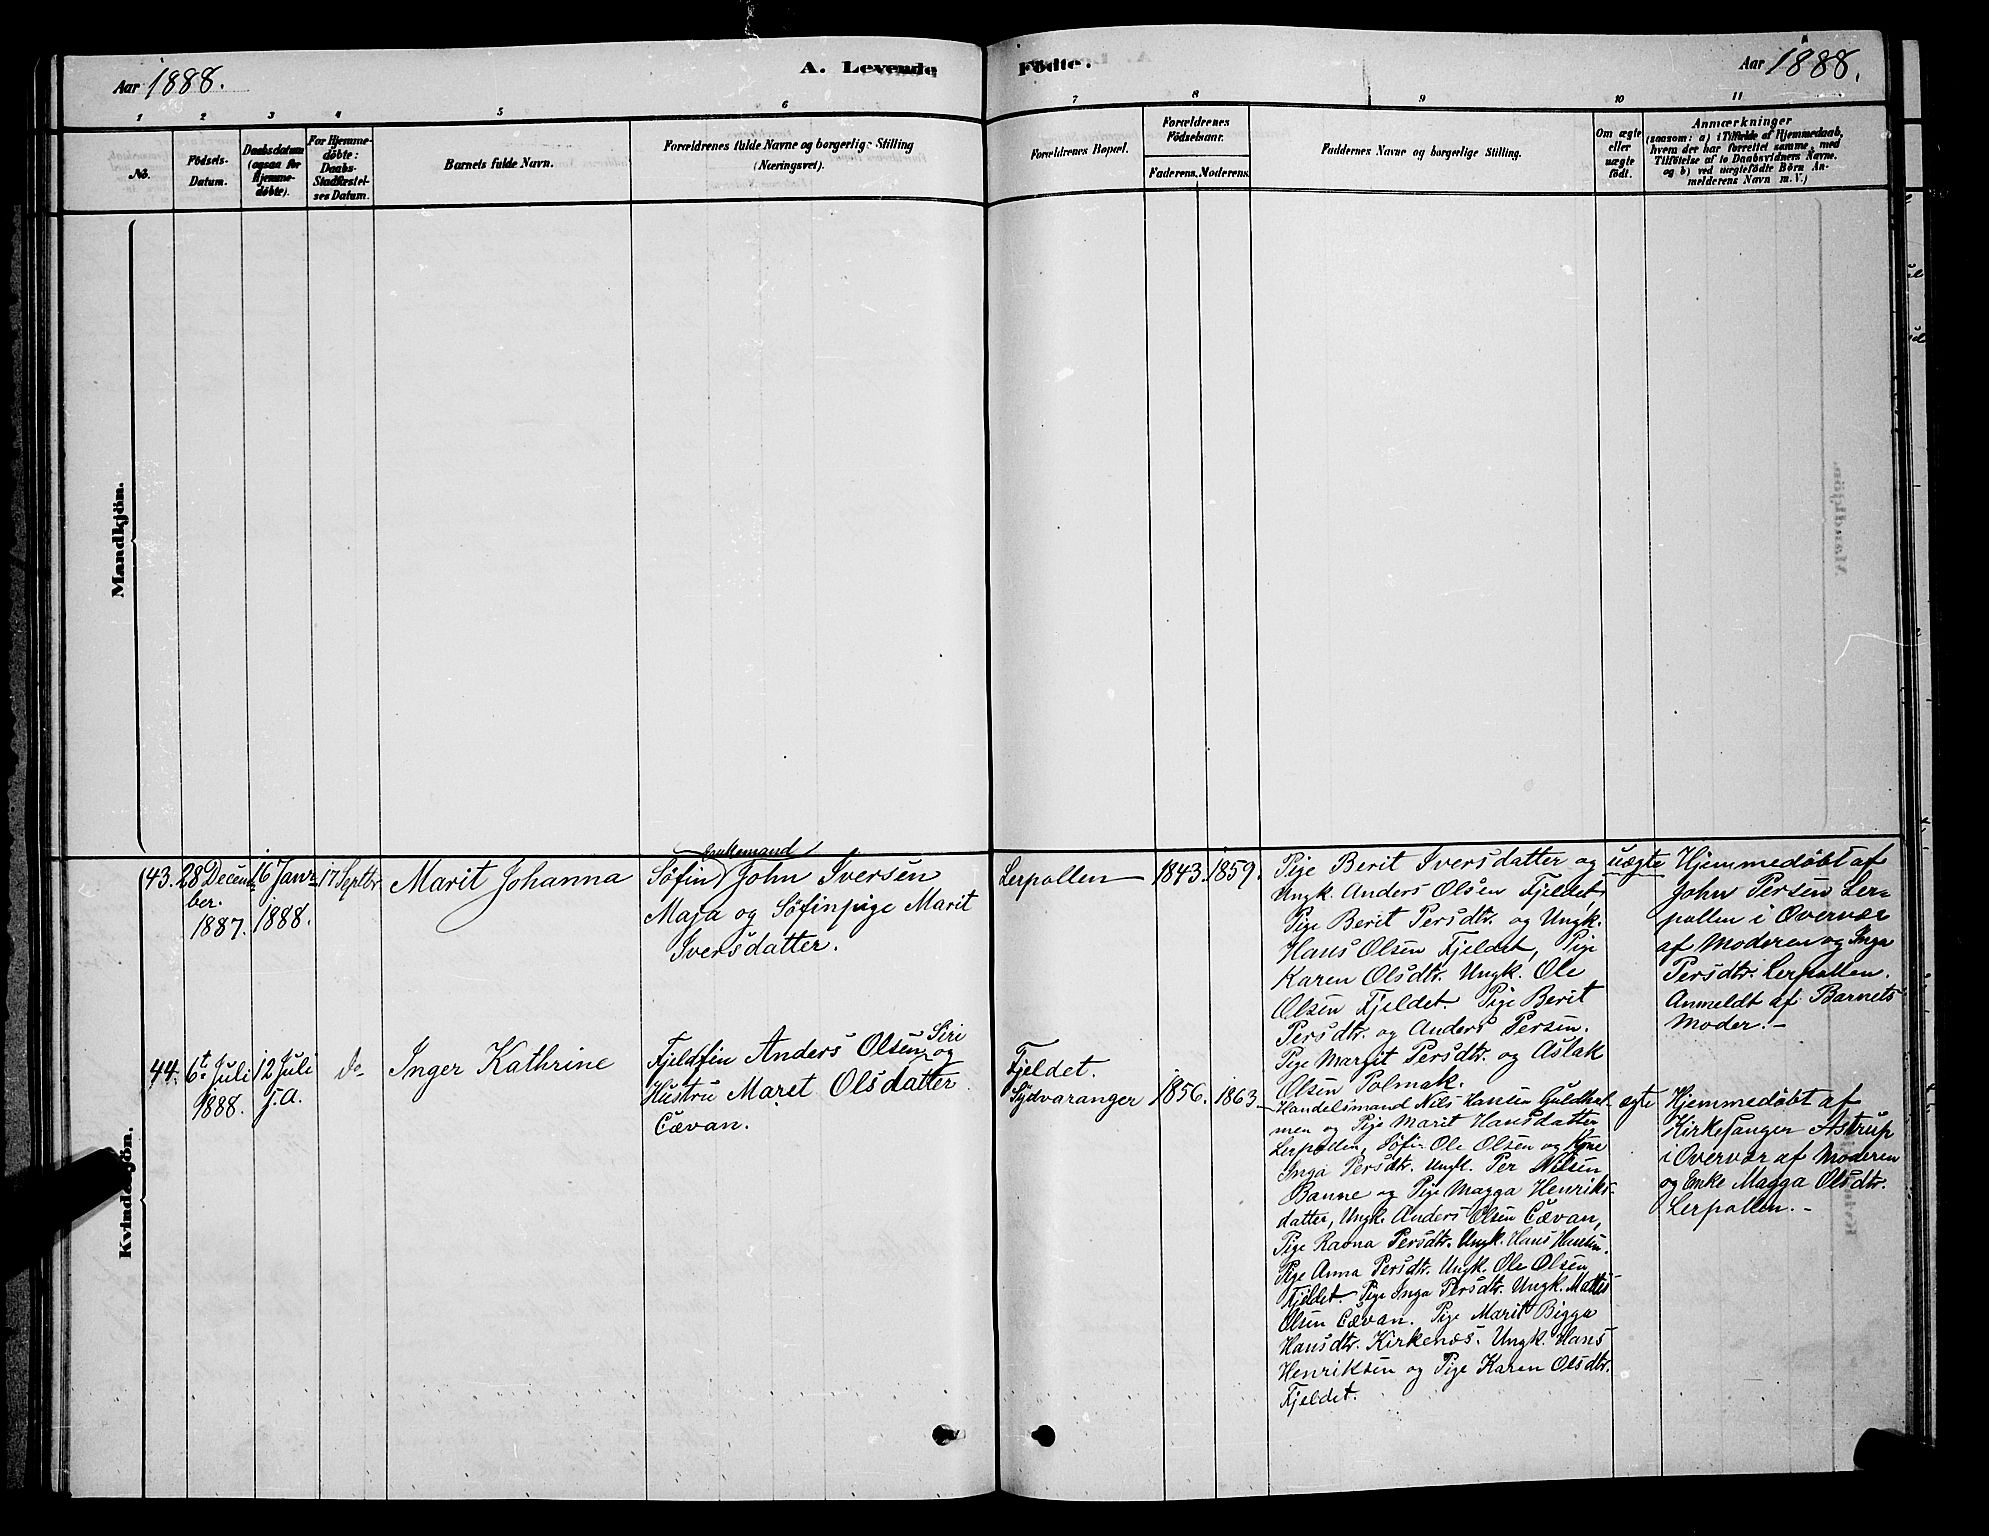 Aar 1888.
A. Levende Födte.
Aar 1888.
1 2 3 4 5 6 7 8 9 10 11
No.
Födsels-
Datum.
Daabsdatum
(ogsaa for
Hjemme-
döbte).
For Hjemme-
döbte:
Daabs-
Stadfæstel-
ses Datum.
Barnets fulde Navn.
Forældrenes fulde Navne og borgerlige Stilling
(Næringsvei).
Forældrenes Bopæl.
Forældrenes
Födselsaar.
Faderens. Moderens.
Faddernes Navne og borgerlige Stilling.
Om ægte
eller
uægte
födt.
Anmærkninger
(saasom: a) i Tilfælde af Hjemmedaab,
hvem der har forrettet samme, med
Tilföielse af to Daabsvidners Navne.
og b) ved uægtefödte Börn An-
melderens Navn m. V.)
Mandkjön.
Kvindekjön.
43.
28 Decem-
ber.
1887.
16 Janr
1888.
17 Septbr
Marit Johanna
Enkemand
Søfin John Iversen
Maja og Søfinpige Marit
Iversdatter.
Lerpollen
1843.
1859.
Pige Berit Iversdatter og
Ungk. Anders Olsen Fjeldet,
Pige Berit Persdtr. og Ungk.
Hans Olsen Fjeldet, Pige
Karen Olsdtr. Ungk. Ole
Olsen Fjeldet. Pige Berit
Persdtr. og Anders Persen.
Pige Margit Persdtr. og Aslak
Olsen Polmak.
uægte
Hjemmedøbt af
John Persen Ler-
pollen i Overvær
af Moderen og Inga
Persdtr. Lerpollen.
Anmeldt af Barnets
Moder. –
44.
6t. Juli
1888.
12 Juli
s. A.
do
Inger Kathrine
Fjeldfin Anders Olsen Siri og
Hustru Maret Olsdatter
Cævan.
Fjeldet.
Sydvaranger
1856.
1863.
Handelsmand Nils Hansen Guldhol-
men og Pige Marit Hansdatter
Lerpollen, Søfin Ole Olsen og Kone
Inga Persdtr. Ungk. Per Nilsen
Banne og Pige Magga Henriks-
datter, Ungk. Anders Olsen Cævan,
Pige Ravna Persdtr. Ungk. Hans Hansen.
Pige Anna Persdtr. Ungk. Ole Olsen
Fjeldet. Pige Inga Persdtr. Ungk. Mattis
Olsen Cævan. Pige Marit Bigga
Hansdtr. Kirkenæs. Ungk. Hans
Henriksen og Pige Karen Olsdtr.
Fjeldet.
ægte
Hjemmedøbt af
Kirkesanger Astrup
i Overvær af Moderen
og Enke Magga Olsdtr.
Lerpollen. –